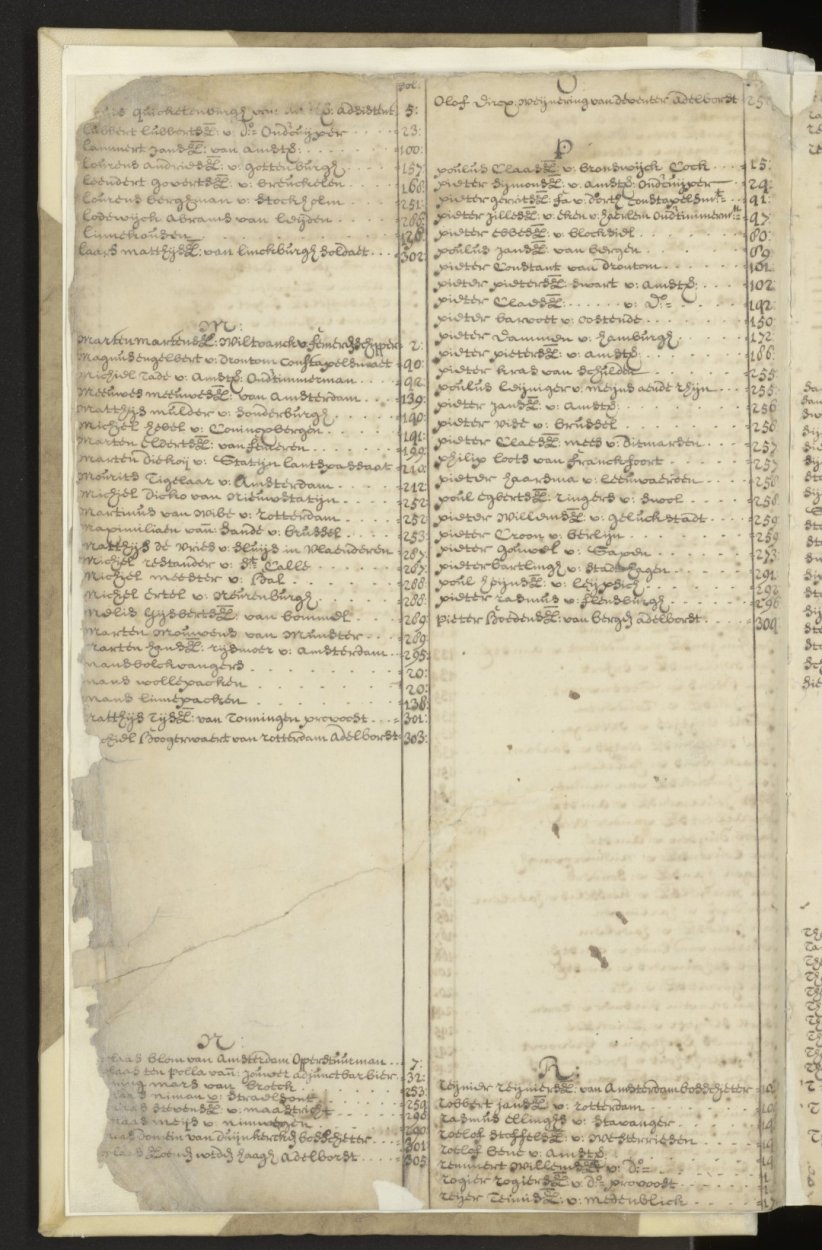 fol:
adsistent 5:
Lubbert Lubbertsz: v: do= Ondcuijper 23:
Lammert Jansz: van Amst: 100:
Lourens Andriessz: v: Gottenburgh 157:
Leendert Govertsz: v: Breuckelen 166:
Lourens Berghman van Stockholm 251:
Lodewijck Abrams van Leijden
Linnekousen
Laars Matthijsz: van Linckburgh soldaet 302:
M:
Marten Martensz: Wiltvanck v: schipper 2:
Magnus Engelbert v: Drontom Constapelsmaet 90:
Michiel Tade v: Amst: Ondtimmerman 92:
Meeuwes Meeuwesz: van Amsterdam 139:
Matthijs Mulder v: Sonderburgh 190:
Michiel Hebel v: Coningsbergen 191:
Marten Elvertsz: van 199:
Marten v: Statijn Lantspassaat 210:
Mourits Tigelaar v: Amsterdam 212:
Michiel Dicko van Nieuwstatijn 252:
Martinus van Wibe v: Rotterdam 252:
Maximiliaen van: Sande v: Brussel 253:
Matthijs de Vries v: Sluijs in Vlaenderen 287:
Michiel Redtander v: St: Calle 287:
Michiel Meester v: Bal 288:
Michiel Ertel v: Neurenburgh 288:
Melis Gijsbertsz: van Bommel 289:
Marten Mouwens van Munster 289:
Marten Hansz: Rijsmoer v: Amsterdam 295:
Mansbolckvangers 20:
Mans wollepacken 20:
Mans linnepacken 138:
Matthijs Tijsz: van Tonningen provoost 301:
chiel Hoogerwaert van Rotterdam Adelborst 303:
N:
laas Blom van Amsterdam Operstuurman 7:
laas ten Polla van: Jouwer adjunct barbier 32:
Mars van Brotck 253:
niman v: Straelsont 259:
Stevensz: v: Maastricht 290:
Meijs v: Nimwegen 290:
Domein van Duijnkercken bosschieter 301:
haagh Adelborst 305:
O
Olof Dircx: Meijnering van Deventer Adelborst 25
P
Poulus Claasz: v: Brondwijck Cock 15:
Pieter Sijmonsz: v: Amst: Ondcuijper 29:
Pieter Gerritsz: Constapelsm:t 91:
Pieter Jillesz: v: Eken v: Haerlem Ondtimmerm:n 97:
Pieter Ebbesz: v: Blocksiel 80:
Poulus Jansz: van Bergen 89:
Pieter Constant van Drontom 101
Pieter Pietersz: Swart v: Amst: 102:
Pieter Claesz: v: Do= 192
Pieter Barvoet v: Oostende 150
Pieter Dammen v: Hamburgh 172
Pieter Pietersz: v: Amst: 186
Pieter Kras van Schilder 255
Poulus Leijniger v: Meijns aende Rhijn 255:
Pieter Jansz: v: Amst: 256
Pieter Vide v: Brussel 256
Pieter Claesz: Mees v: Ditmarsen 257
Philip Loots van Franckfoort 257
Pieter Haarsma v: Leeuwaerden 258
Poul Egbertsz: Ringers v: Swol 258
Pieter Willemsz: v: Geluckstadt 259
Pieter Croon v: Berlijn 259
Pieter Gouwel v: Saxen 273
Pieter Bartlingh v: Stadthagen 291
Poul Heijnsz: v: Leijpsich 292
Pieter Rasmus v: Flensburgh 296
Pieter Roedensz: van Bergen adelborst 309
R:
Reijnier Reijniersz: van Amsterdam bosschieter
Robbert Jansz: v: Rotterdam
Rasmus Ellingh v: Stavanger
Roelof Stoffelsz: v: Westervrieden
Roelof Bene v: Amst:
Remmert Willemsz: v: Do=
Rogier Rogiersz: v: Do= provoost
Reijer Teunisz: v: Medenblick